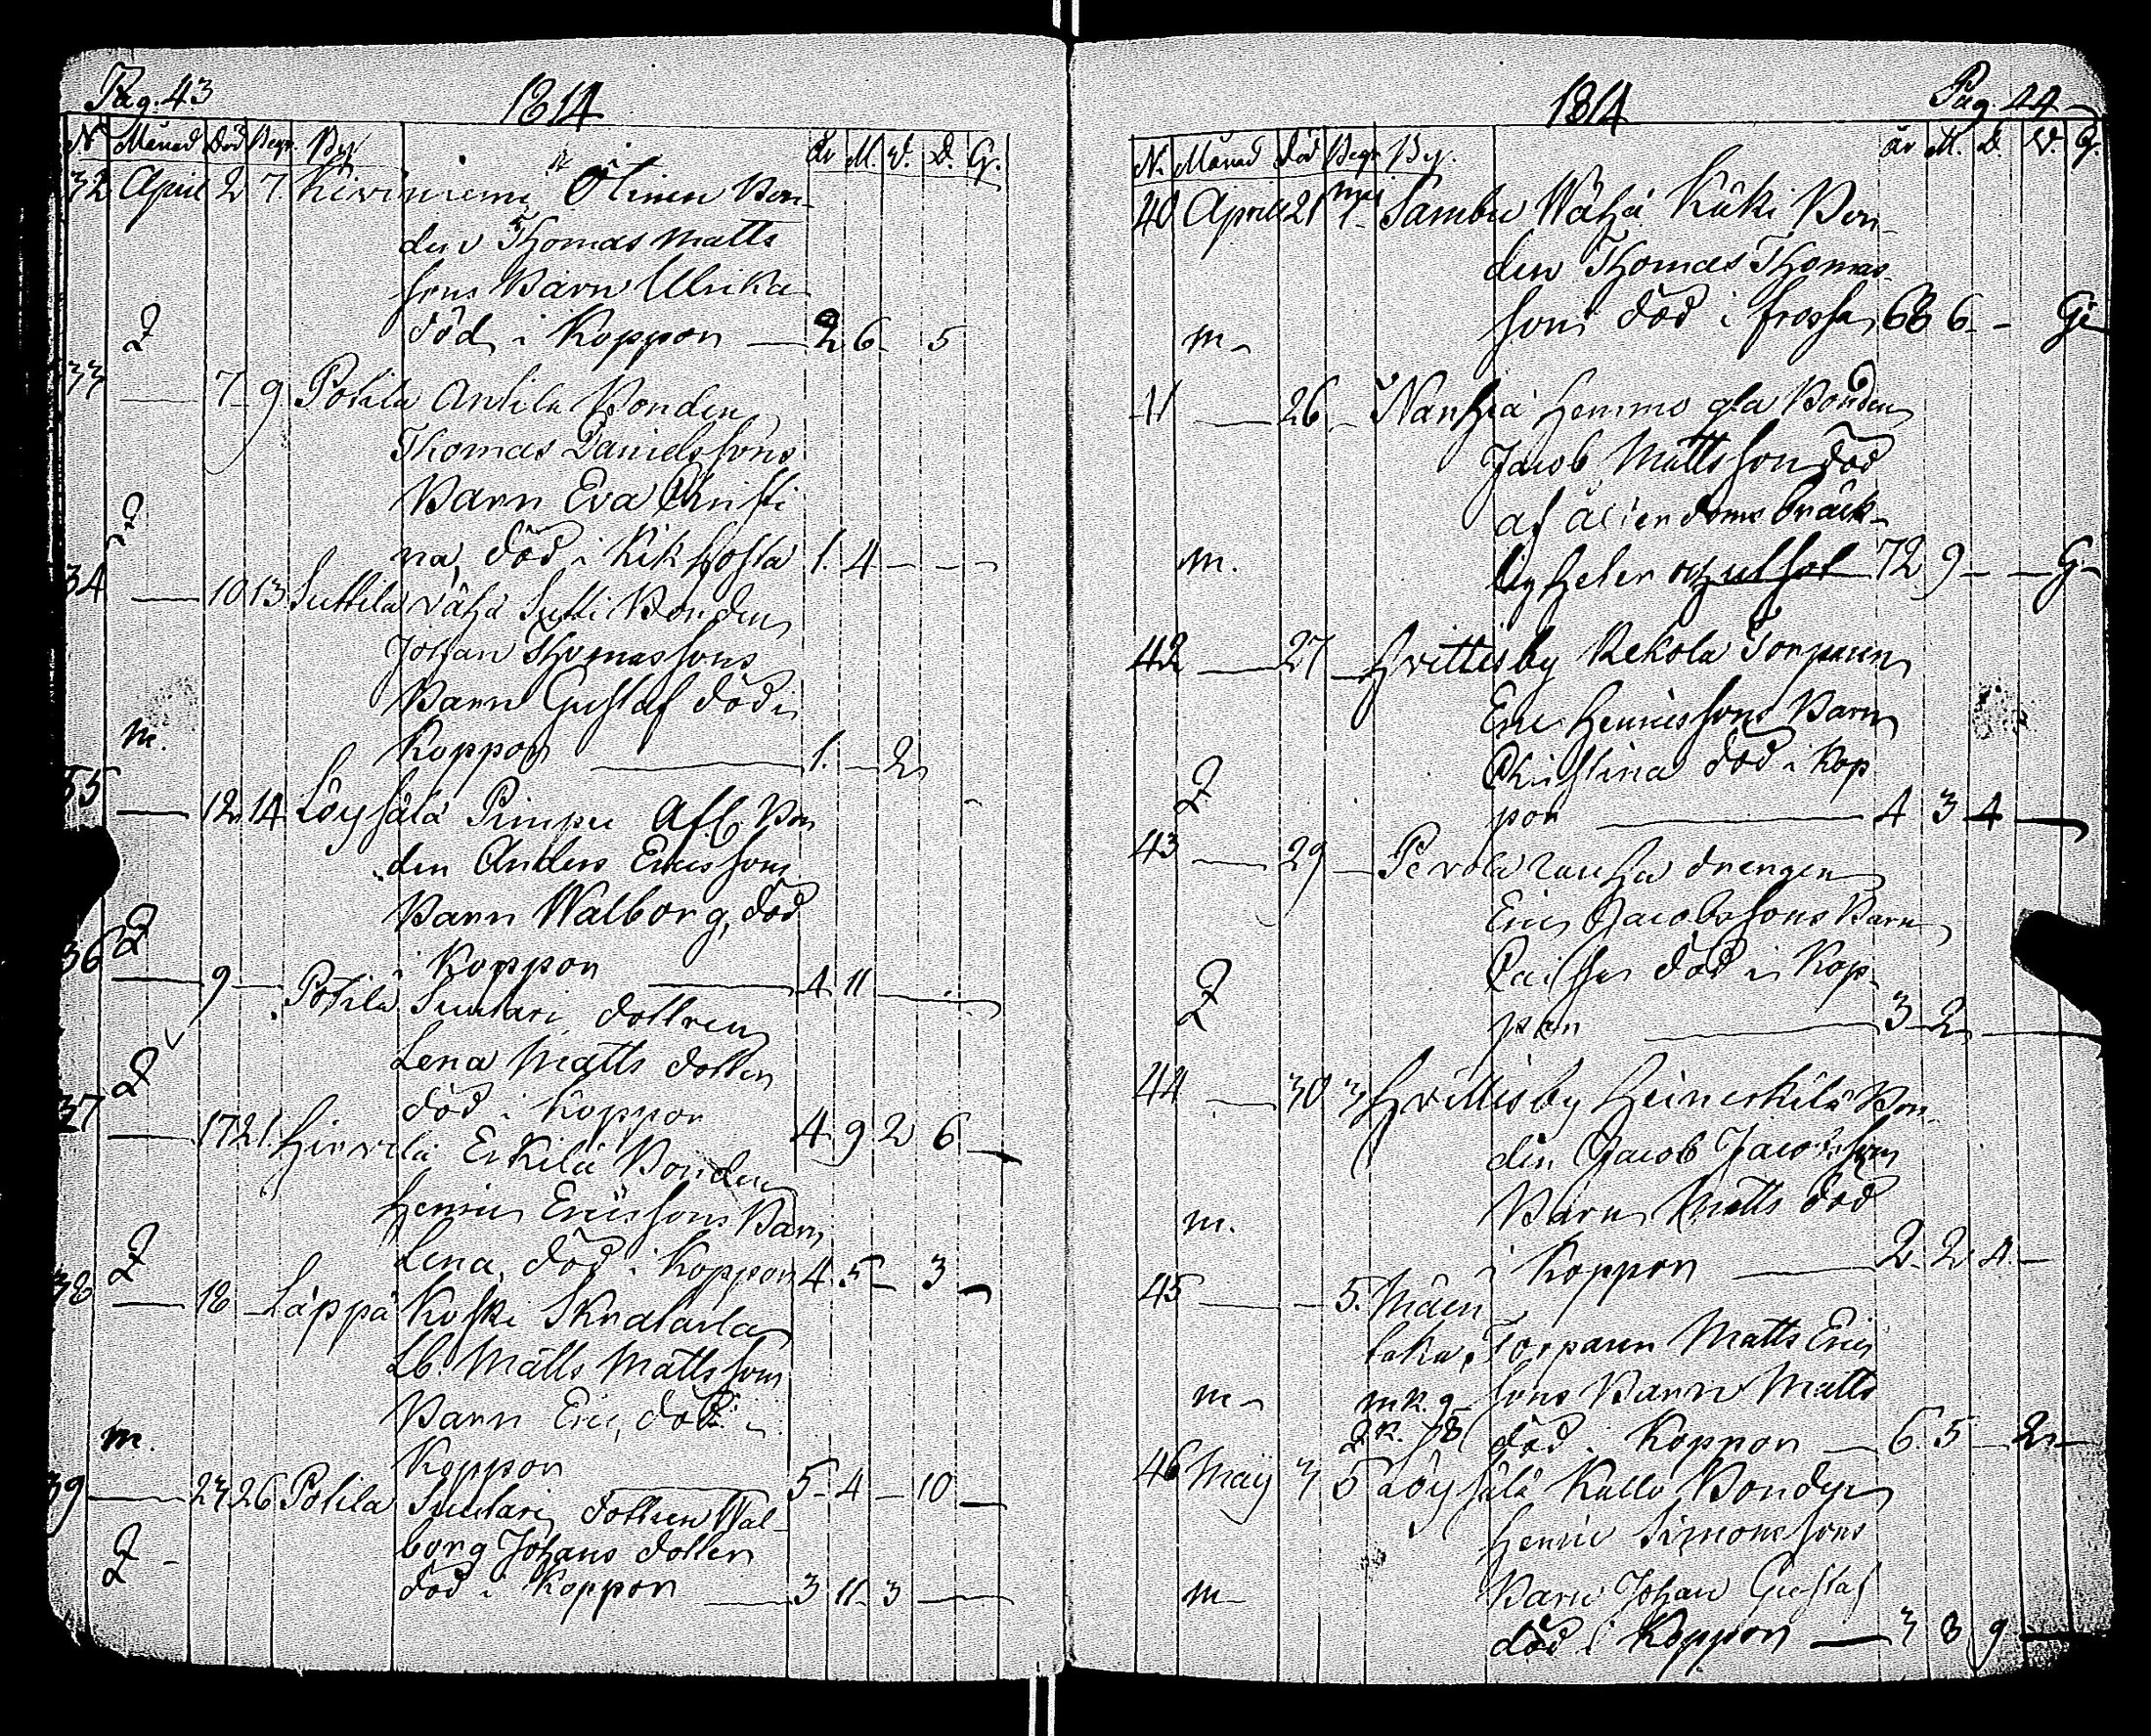 Pag. 43
1814
N Månad Död Begr. By År M. V. D. G.
32 April 2 7. Kiviniemi Ölinen Bon-
den Thomas Matts
sons Barn Ulrika
Q död i Koppon 2 6 5
33 7 9 Potila Antila Bonden
Thomas Danielssons
Barn Eva Christi
Q na, död i Kikhosta 1. 4 - - -
34 10 13 Suttila Vähä Sutti Bonden
Johan Thomassons
Barn Gustaf död i
m. Koppon 1. - 2
35 12 14 Löysälä Pimpu Afl. Bon
den Anders Ericssons
Barn Walborg, död
Q i Koppon 4 11
36 9 - Potila Suutari dottren
Lena Matts dotter
Q död i Koppon 4 9 2 6
37 17 21. Hirvelä Erkilä Bonden
Henric Ericssons Barn
Q Lena, död i Koppon 4. 5 - 3 -
38 18 - Läppä Koski
Lb. Matts Mattsson
Barn Eric, död i
m. Koppon 5 - 4 - 10 -
39 23 26 Potila Suutari dottren Wal-
borg Johans dotter
Q - död i Koppon 3 11 3
Pag. 44
1814
N. Månad Död Begr. By. År M. D. V. G.
40 April 21 maj 1 - Sambu Wähä Käki Bon-
den Thomas Thomas
m - son död i frossa 68 6 - Gi
41 26 - Nanhia Hemmo gla Bonden
Jacob Mattsson död
af ålderdoms bräck-
m. ligheter 72 9 - - G -
42 27 - Hvittisby Rekola Torparen
Eric Henricssons Barn
Christina död i Kop
Q pon 4 3 4
43 29 - Pevola drengen
Eric Jacobssons Barn
Caisa död i Kop-
Q pon 3 - 2
44 30 3 Hvittisby Heinerkilä Bon-
den Jacob Jacobssons
Barn Matts död
m. i Koppon 2 - 2 4. -
45 - 5. Mäen
taka, Torparen Matts Erics
m - mk. 9 - sons Barn Matts
Qk. 18 död i Koppon 6. 5 - 2 -
46 Maij 3 5 Löysälä Kallo Bonden
Henric Simonssons
m - Barn Johan Gustaf
död i Koppon 3 8 9